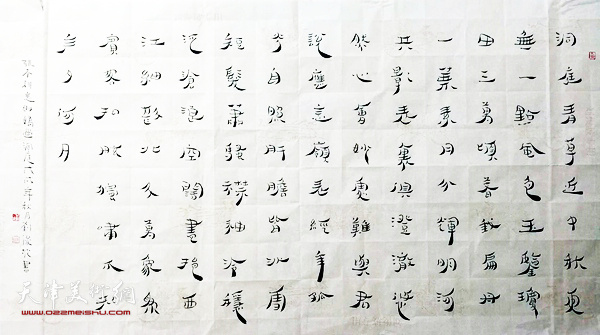 洞庭青草近中秋更
無一點風色玉鑒瓊
田三萬頃著我扁舟
一葉素月分輝明河
共影表裏俱澄澈悠
然心會妙處難與君
說應念嶺表經年孤
光自照肝膽皆冰雪
短髮蕭騷襟袖冷穩
泛滄浪空闊盡挹西
江細斟北斗萬象為
賓客扣舷獨嘯不知
今夕何夕
天津美术网
www.022meishu.com